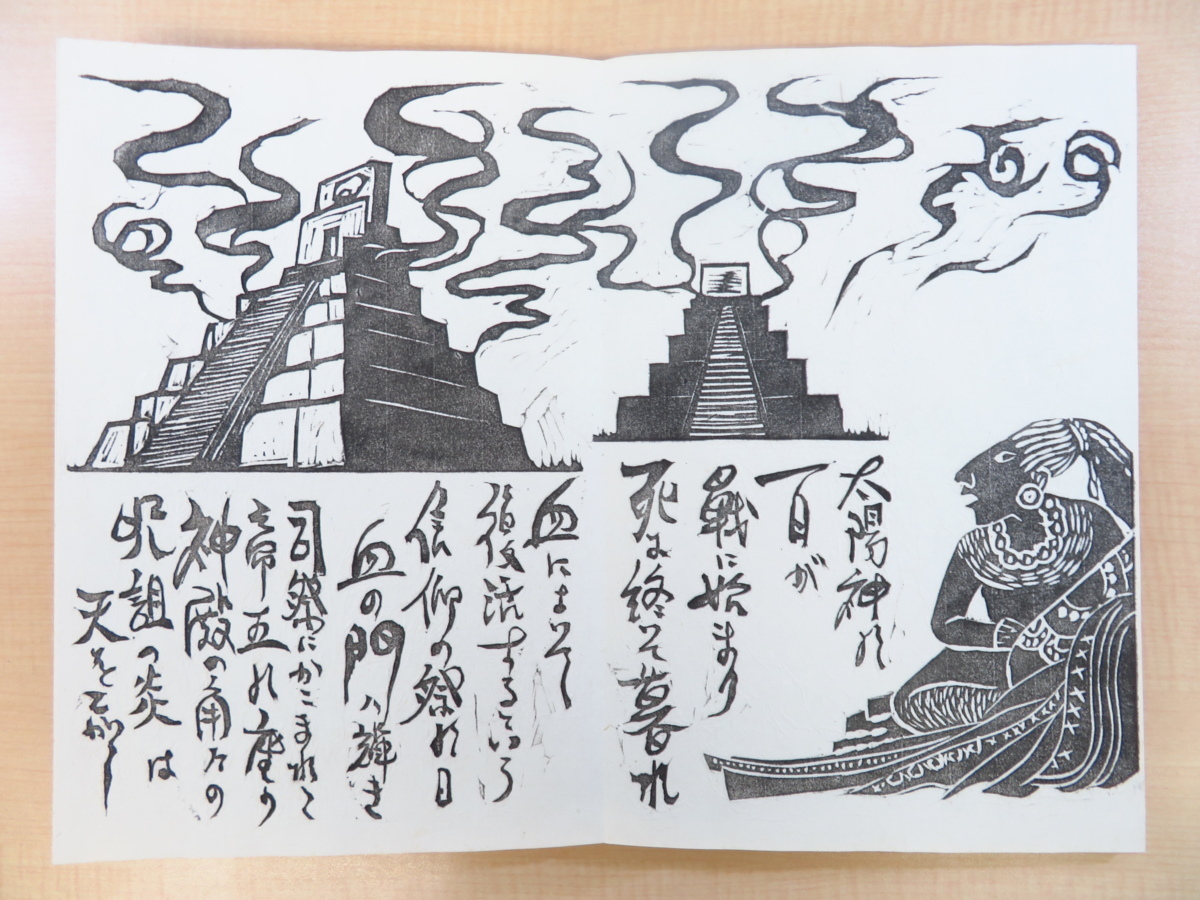 太陽神の
一日が
戦に始まり
死は終って暮れ
血によって
復活するという
信仰の祭の日
血の門は輝き
司祭にかこまれて
帝王の座の
神殿の角の
呪詛の炎は
天をこがし